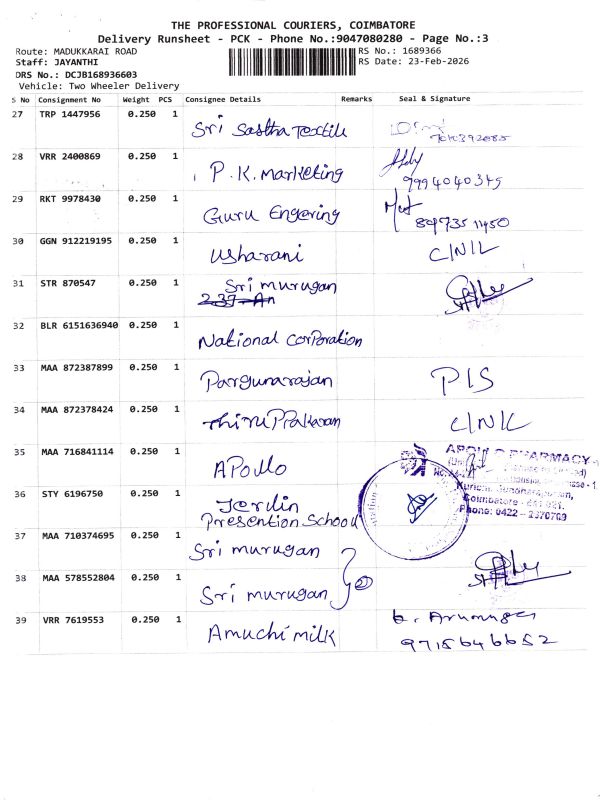 THE PROFESSIONAL COURIERS, COIMBATORE
Delivery Runsheet - PCK - Phone No.:9047080280 - Page No.:3
Route: MADUKKARAI ROAD
RS No.: 1689366
Staff: JAYANTHI
RS Date: 23-Feb-2026
DRS No.: DCJB168936603
Vehicle: Two Wheeler Delivery
S No Consignment No Weight PCS Consignee Details Remarks Seal & Signature
27 TRP 1447956 0.250 1 Sri Sastha Textile
28 VRR 2400869 0.250 1 P.K. Marketing
9994040345
29 RKT 9978430 0.250 1 Guru Engering
30 GGN 912219195 0.250 1 Usharani C/N/L
31 STR 870547 0.250 1 Sri murugan
32 BLR 6151636940 0.250 1 National Corporation
33 MAA 872387899 0.250 1 Pargunarajan P/S
34 MAA 872378424 0.250 1 Thiru Prakaram C/N/L
35 MAA 716841114 0.250 1 Apollo
APOLLO PHARMACY
Coimbatore - 641 021.
Phone: 0422 - 2970769
36 STY 6196750 0.250 1 Jerdin
Presention School
37 MAA 710374695 0.250 1 Sri murugan
38 MAA 578552804 0.250 1 Sri murugan 2
39 VRR 7619553 0.250 1 Amuchi milk
9715646652